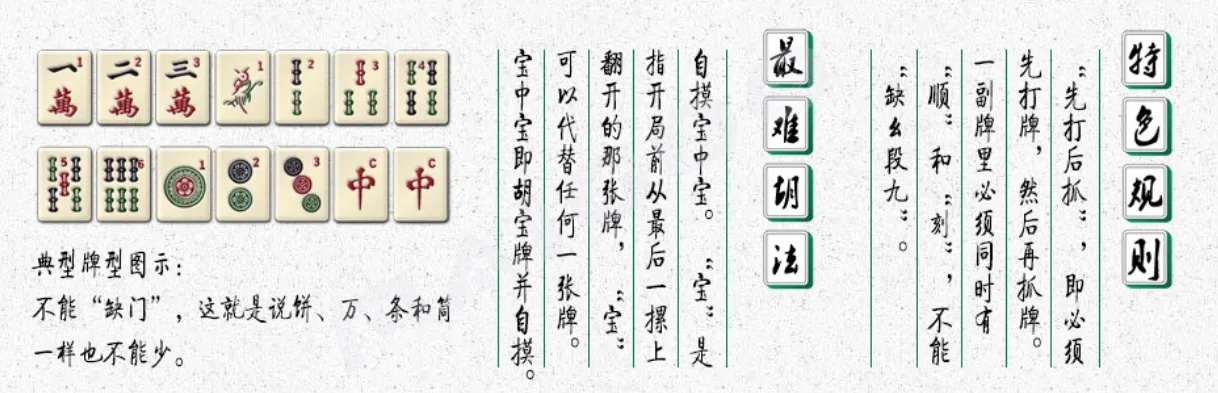 特色规则
“先打后抓”，即必须
先打牌，然后再抓牌。
一副牌里必须同时有
“顺”和“刻”，不能
“缺幺段九”。
最难胡法
自摸宝中宝。“宝”是
指开局前从最后一摞上
翻开的那张牌，“宝”
可以代替任何一张牌。
宝中宝即胡宝牌并自摸。
一萬1 二萬2 三萬3 1 2 3 4
5 6 1 2 3 中C 中C
典型牌型图示：
不能“缺门”，这就是说饼、万、条和筒
一样也不能少。